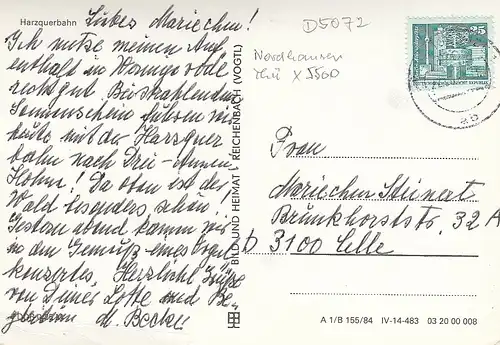 Harzquerbahn
Liebes Mariechen!
Ich nutze meinen Auf
enthalt in Wernigerode
recht gut. Bei strahlendem
Sonnenschein fuhren wir
heute mit der Harzquer
bahn nach Drei-Annen
Hohne! Da oben ist der
Wald besonders schön!
Gestern abend kamen wir
in den Genuß eines Orgel
konzertes. Herzliche Grüße
von Deiner Lotte und Be-
gleiterin M. Becker
BILD UND HEIMAT REICHENBACH (VOGTL)
D5072
Nordhausen
Thü X 5560
25
DDR
ab
Frau
Mariechen Steinert
Brünkhorststr. 32 A
3100 Celle
A 1/B 155/84 IV-14-483 03 20 00 008